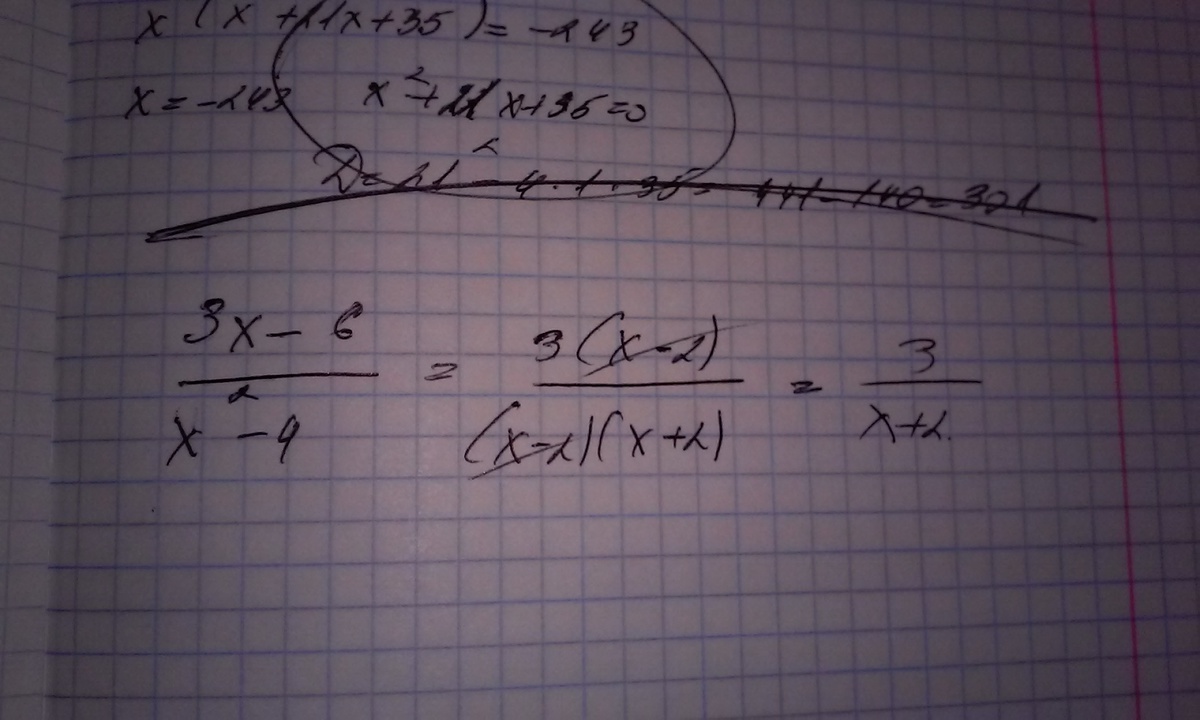 x (x + 21x + 35) = -243
x = -243 x² + 21x + 35 = 0
D = 21² - 4 · 1 · 35 = 441 - 140 = 301
3x - 6 / x² - 4 = 3(x - 2) / (x - 2)(x + 2) = 3 / x + 2.